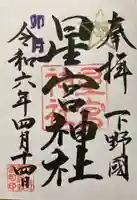 奉拝
下野國
星宮神社
卯月
令和六年四月十四日